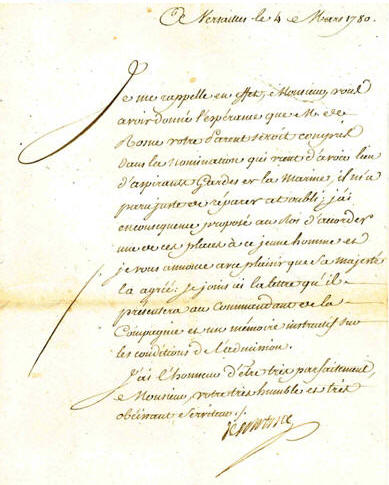 A Versailles le 4 Mars 1780.
Je me rappelle en effet, Monsieur, vous
avoir donné l'espérance que M. de
Rome votre Parent seroit compris
dans la nomination qui vient d'avoir lieu
d'aspirants Gardes de la Marine, il m'a
paru juste de réparer cet oubli, j'ai
en consequence proposé au Roi d'accorder
une de ces places à ce jeune homme et
je vous annonce avec plaisir que Sa majesté
la agréé: je joins ici la lettre qu'il
presentera au Commandant de la
Compagnie et un mémoire instructif sur
les conditions de l'admission.
J'ai l'honneur d'être très parfaitement,
Monsieur, votre très humble et très
obéissant Serviteur./.